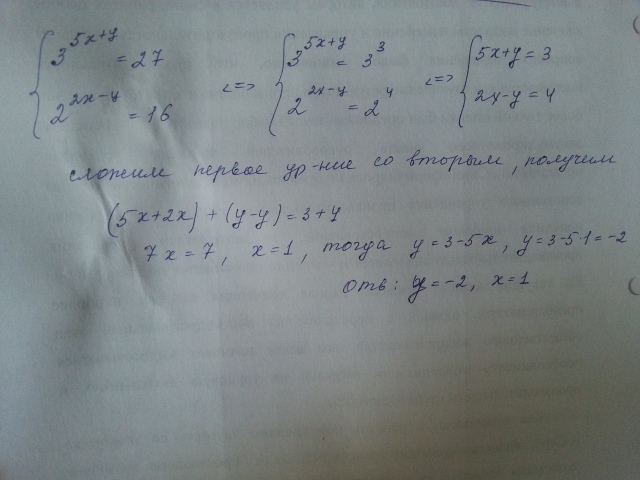 { 3^(5x+y) = 27 <=> { 3^(5x+y) = 3^3 <=> { 5x+y = 3
{ 2^(2x-y) = 16 <=> { 2^(2x-y) = 2^4 <=> { 2x-y = 4
сложим первое ур-ние со вторым, получим
(5x+2x) + (y-y) = 3+4
7x = 7, x = 1, тогда y = 3-5x, y = 3-5·1 = -2
Отв: y = -2, x = 1